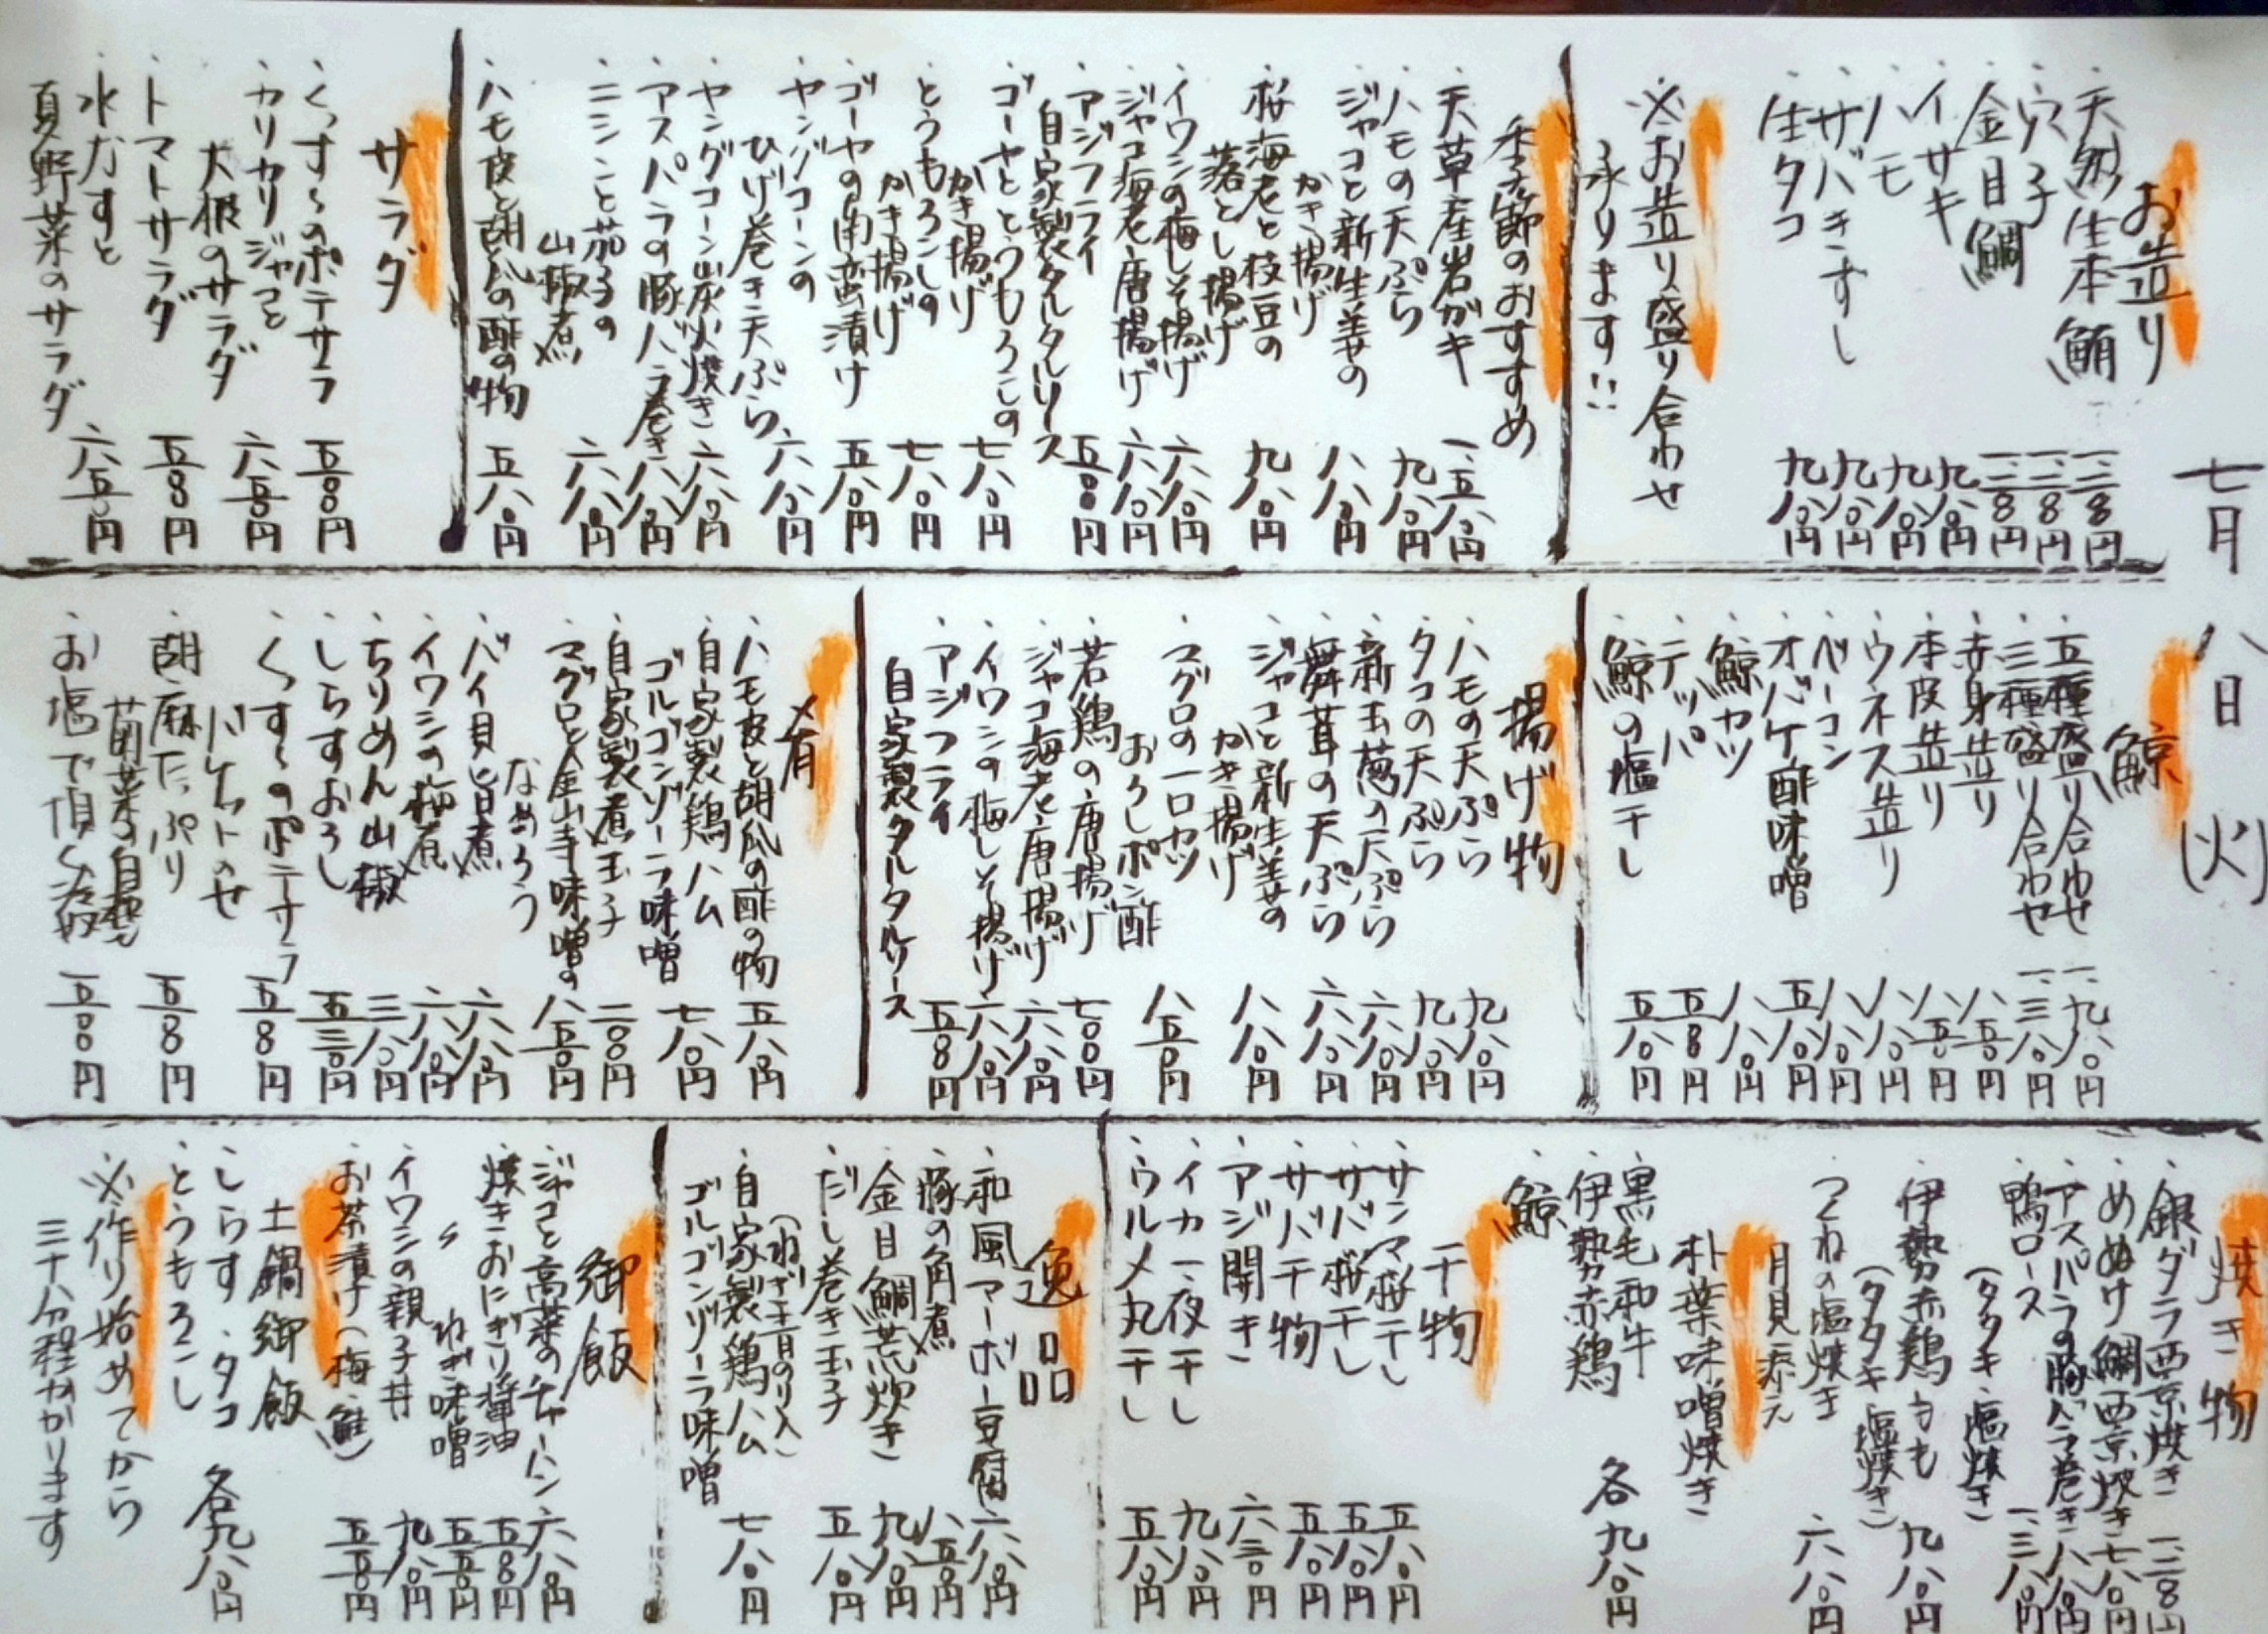 七月八日(火)
お造り
・天然生本鮪
・穴子
・金目鯛
・イサキ
・ハモ
・サバきずし
・生タコ
九八〇円
九八〇円
九八〇円
九八〇円
※お造り盛り合わせ
承ります!!
季節のおすすめ
・天草産岩ガキ 一、五八〇円
・ハモの天ぷら 九八〇円
・ジャコと新生姜の
かき揚げ 八八〇円
・桜海老と枝豆の
落とし揚げ 九八〇円
・イワシの梅しそ揚げ 六八〇円
・ジャコ海老唐揚げ 六八〇円
・アジフライ
自家製タルタルソース 五八〇円
・ゴーヤととうもろこしの
かき揚げ 七八〇円
・とうもろこしの
かき揚げ 七八〇円
・ゴーヤの南蛮漬け 五八〇円
・ヤングコーンの
ひげ巻き天ぷら 六八〇円
・ヤングコーン炭火焼き 六八〇円
・アスパラの豚バラ巻き 六八〇円
・ニシンと茄子の
山椒煮 六八〇円
・ハモ皮と胡瓜の酢の物 五八〇円
サラダ
・くす〜のポテサラ
・カリカリジャコと
大根のサラダ
・トマトサラダ
・水なすと
夏野菜のサラダ
鯨
・五種盛り合わせ 一、九八〇円
・三種盛り合わせ 一、三八〇円
・赤身造り
・本皮造り
・ウネス造り 八八〇円
・ベーコン 八八〇円
・オバケ酢味噌 五八〇円
・鯨カツ 八八〇円
・テッパ
・鯨の塩干し 五八〇円
揚げ物
・ハモの天ぷら 九八〇円
・タコの天ぷら 九八〇円
・新玉葱の天ぷら 六八〇円
・舞茸の天ぷら 六八〇円
・ジャコと新生姜の
かき揚げ 八八〇円
・マグロの一口カツ
おろしポン酢 八五〇円
・若鶏の唐揚げ 七〇〇円
・ジャコ海老唐揚げ 六八〇円
・イワシの梅しそ揚げ 六八〇円
・アジフライ
自家製タルタルソース
肴
・ハモ皮と胡瓜の酢の物 五八〇円
・自家製鶏ハム
ゴルゴンゾーラ味噌 七八〇円
・自家製煮玉子
・マグロと金山寺味噌の
なめろう 八五〇円
・バイ貝旨煮 六八〇円
・イワシの梅煮 六八〇円
・ちりめん山椒 三八〇円
・しらすおろし
・くす〜のポテサラ
バケットのせ
・胡麻たっぷり
・お塩で頂く
焼き物
・銀ダラ西京焼き
・めぬけ鯛西京焼き 七八〇円
・アスパラの豚バラ巻き 六八〇円
・鴨ロース
(タタキ・塩焼き) 一、三八〇円
・伊勢赤鶏もも
(タタキ・塩焼き) 九八〇円
・つくねの塩焼き
月見添え 六八〇円
朴葉味噌焼き
・黒毛和牛
・伊勢赤鶏
・鯨
各九八〇円
干物
・サンマ桜干し 五八〇円
・サバ桜干し 五八〇円
・サバ干物 五八〇円
・アジ開き 六三〇円
・イカ一夜干し 九八〇円
・ウルメ丸干し 五八〇円
逸品
・和風マーボー豆腐 六八〇円
・豚の角煮 八五〇円
・金目鯛荒炊き 九八〇円
・だし巻き玉子
(ねぎ・青のり入) 五八〇円
・自家製鶏ハム
ゴルゴンゾーラ味噌 七八〇円
御飯
・ジャコと高菜のチャーハン 六八〇円
・焼きおにぎり醤油
・〃 ねぎ味噌
・イワシの親子丼 九八〇円
・お茶漬け(梅・鮭)
土鍋御飯
・しらす・タコ
・とうもろこし
各九八〇円
※作り始めてから
三十分程かかります